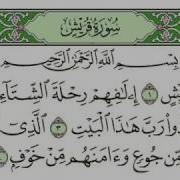 سُورَةُ قُرَيْشٍ
بِسْمِ ٱللَّهِ ٱلرَّحْمَٰنِ ٱلرَّحِيمِ
شٍ ١ إِۦلَٰفِهِمْ رِحْلَةَ ٱلشِّتَآءِ
وا۟ رَبَّ هَٰذَا ٱلْبَيْتِ ٣ ٱلَّذِىٓ
مِّن جُوعٍ وَءَامَنَهُم مِّنْ خَوْفٍۭ